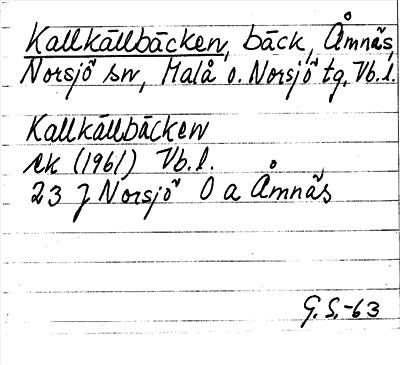 Kallkällbäcken, bäck, Åmnäs,
Norsjö sn, Malå o. Norsjö tg, Vb.l.
Kallkällbäcken
ek (1961) Vb.l.
23 J Norsjö O a Åmnäs
G.S.-63